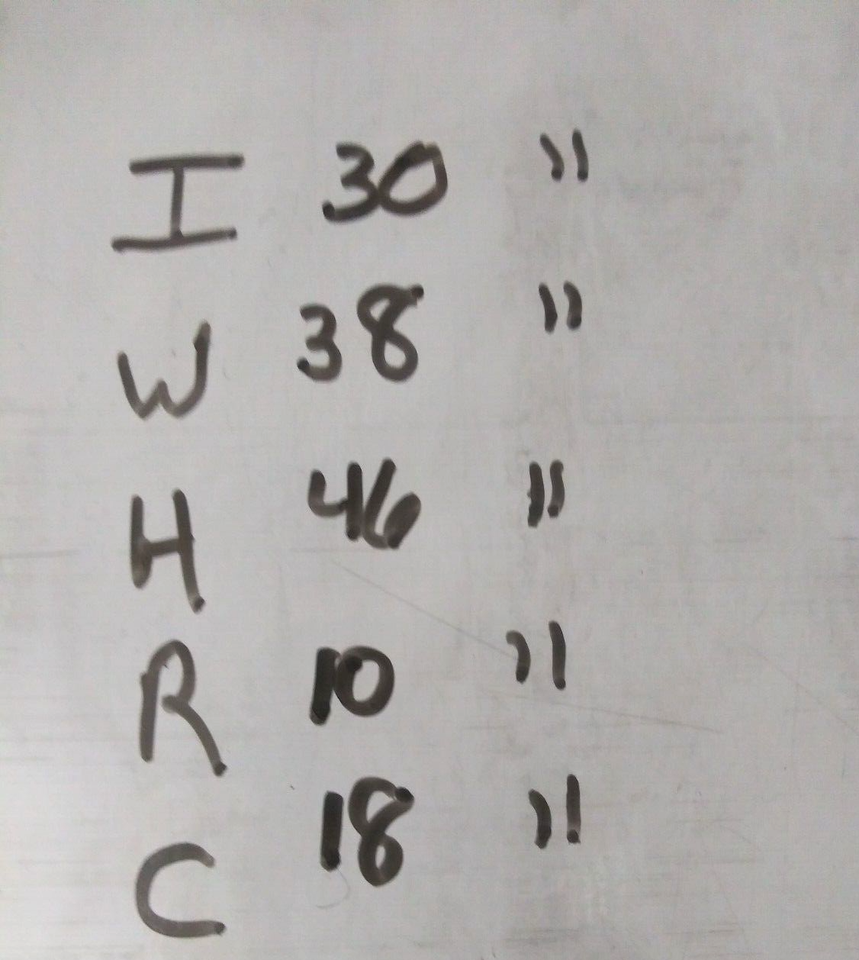 I 30 "
W 38 "
H 46 "
R 10 "
C 18 "